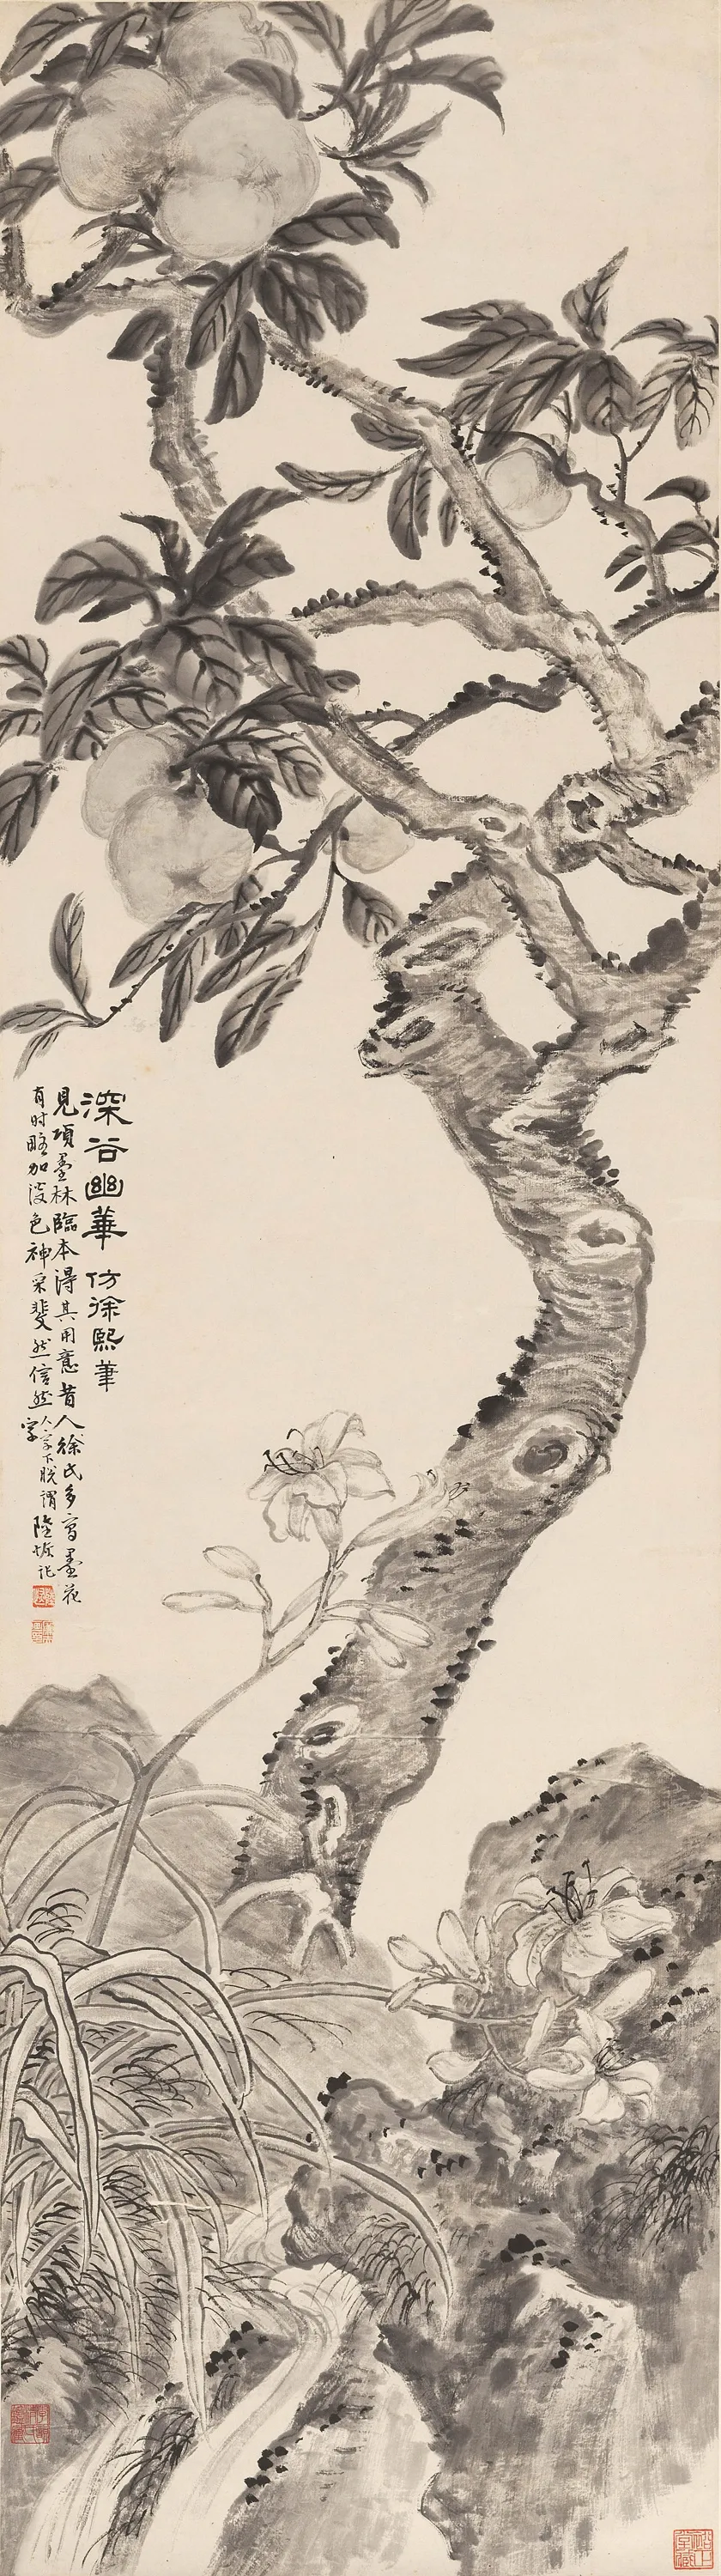 深谷幽華 仿徐熙筆
見項墨林臨本得其用意昔人徐氏多寫墨花
有时略加淡色神采斐然信然
人字下脫謂字
陸恢記